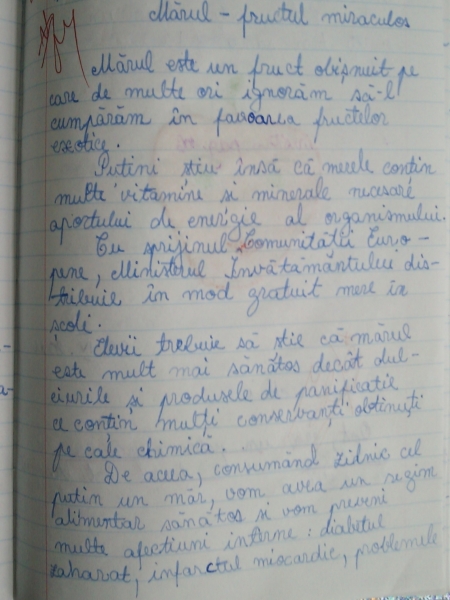 Mărul - fructul miraculos
Mărul este un fruct obișnuit pe
care de multe ori ignorăm să-l
cumpărăm în favoarea fructelor
exotice.
Putini stiu însă că merele contin
multe vitamine si minerale necesare
aportului de energie al organismului.
Cu sprijinul Comunitătii Euro-
pene, Ministerul Învătământului dis-
tribuie în mod gratuit mere în
școli.
Elevii trebuie să stie că mărul
este mult mai sănătos decât dul-
ciurile si produsele de panificatie
ce conțin mulți conservanți obtinuti
pe cale chimică.
De aceea, consumând zilnic cel
putin un măr, vom avea un regim
alimentar sănătos si vom preveni
multe afectiuni interne: diabetul
zaharat, infarctul miocardic, problemele